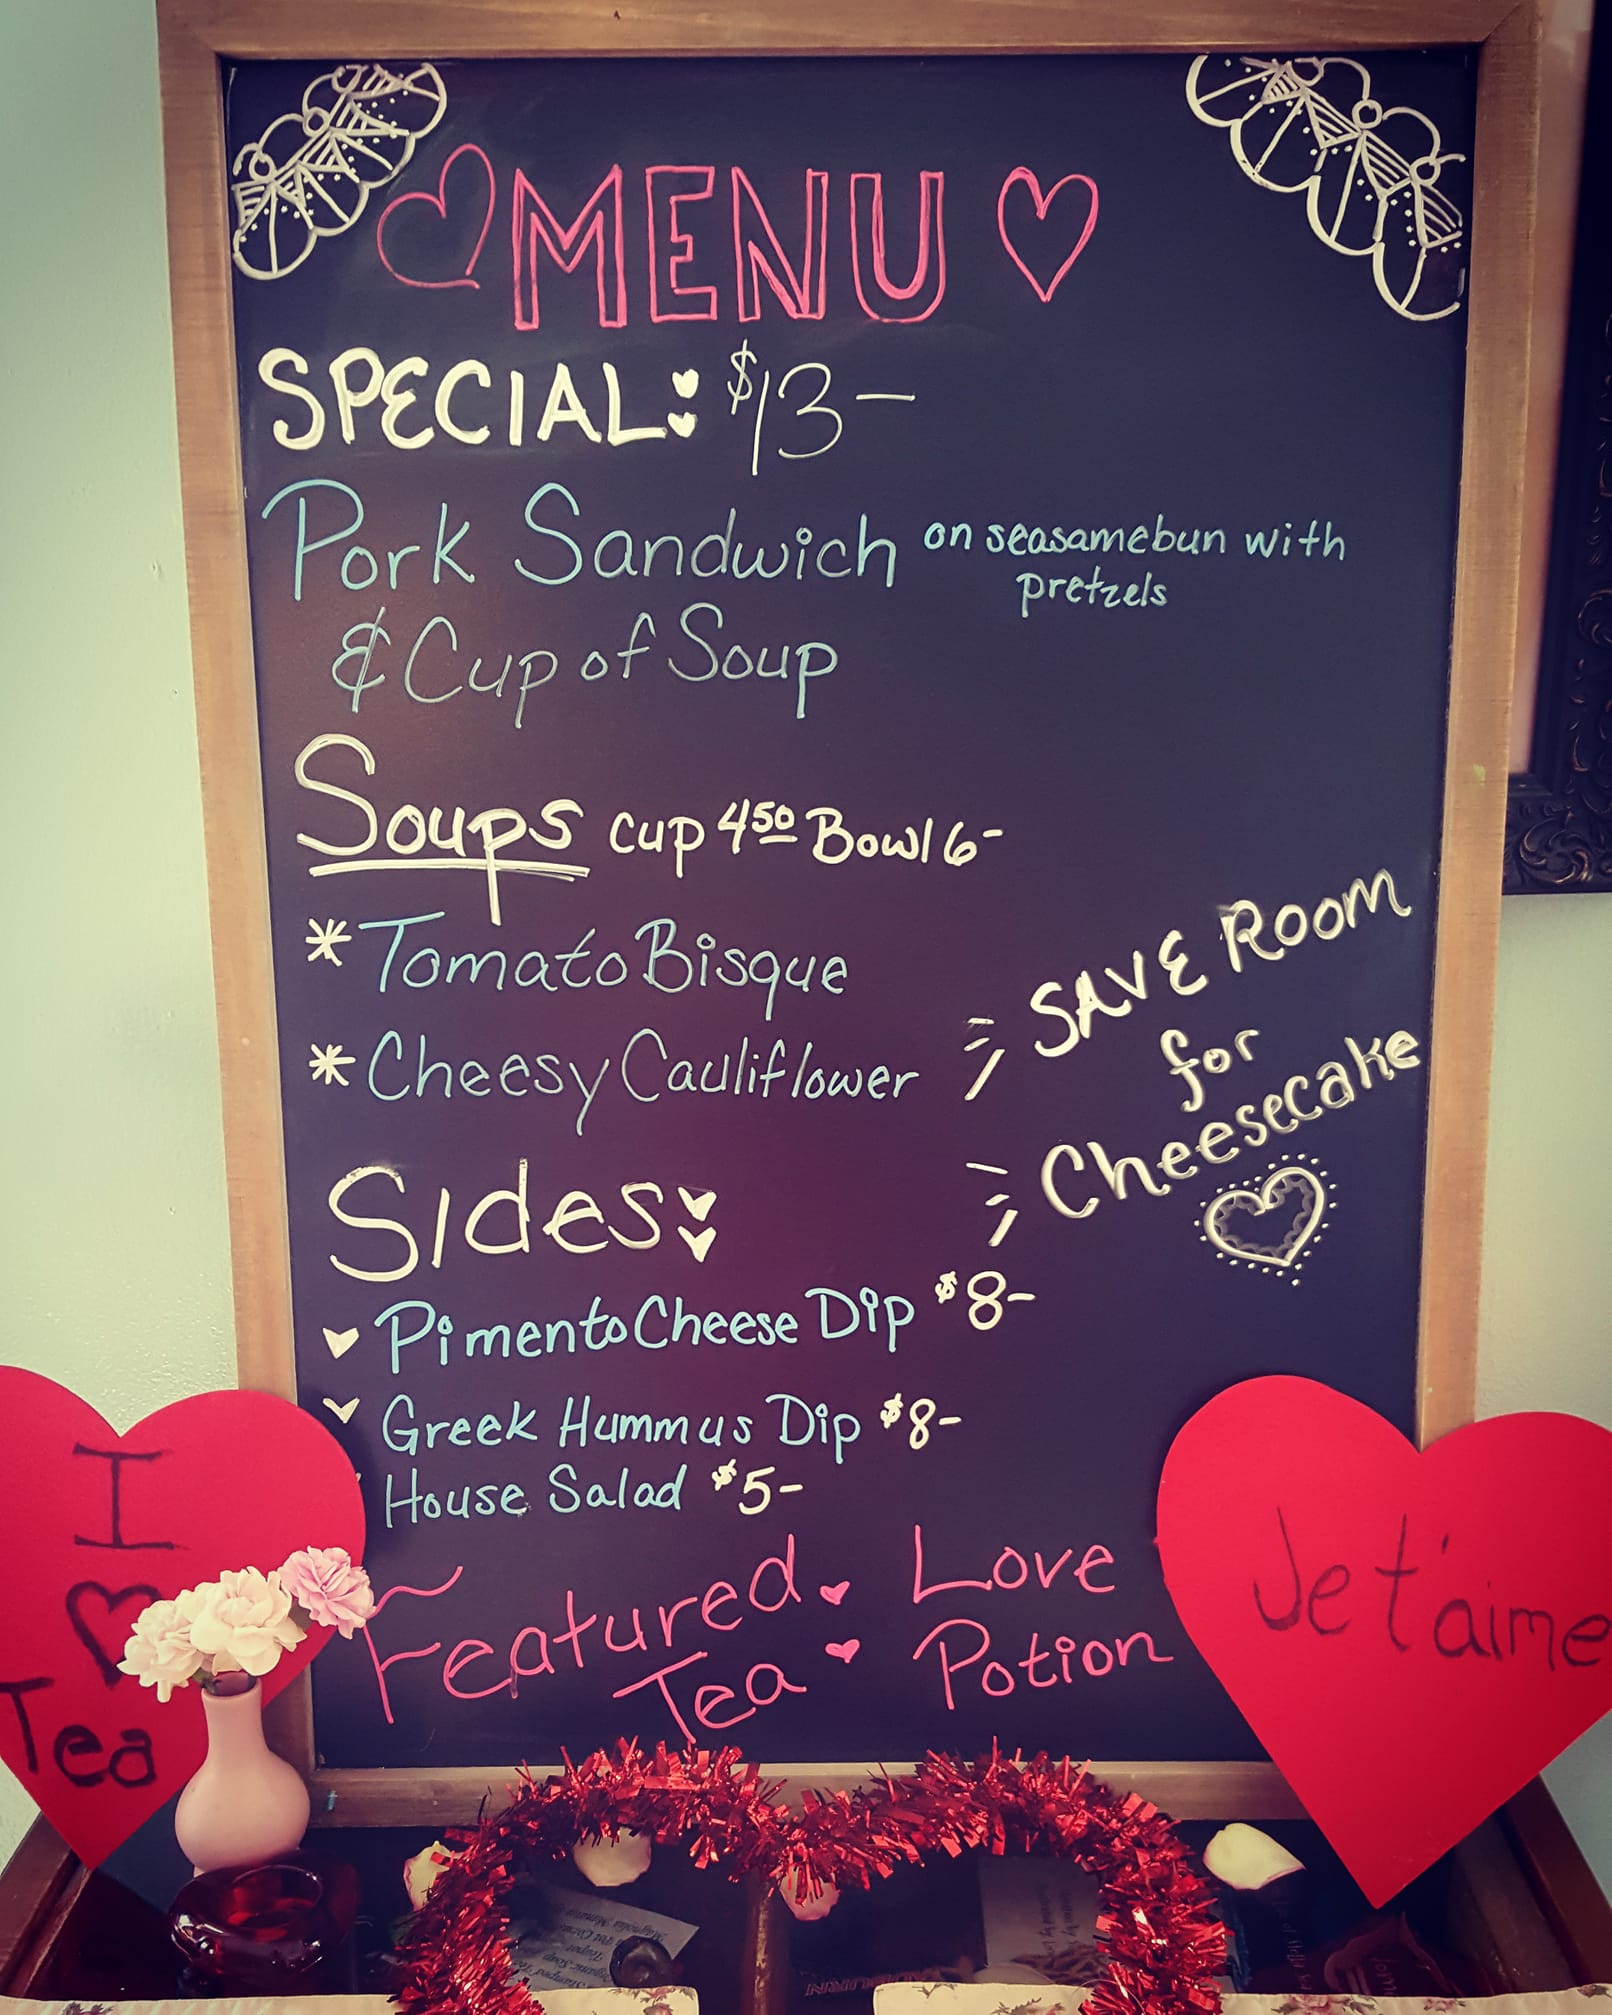 MENU
SPECIAL: $13-
Pork Sandwich on seasamebun with
pretzels
& Cup of Soup
Soups cup 4 50 Bowl 6-
* Tomato Bisque
* Cheesy Cauliflower
SAVE ROOM
for
Cheesecake
Sides:
Pimento Cheese Dip $8-
Greek Hummus Dip $8-
House Salad $5-
Featured Love
Tea Potion
I
Tea
Je t'aime